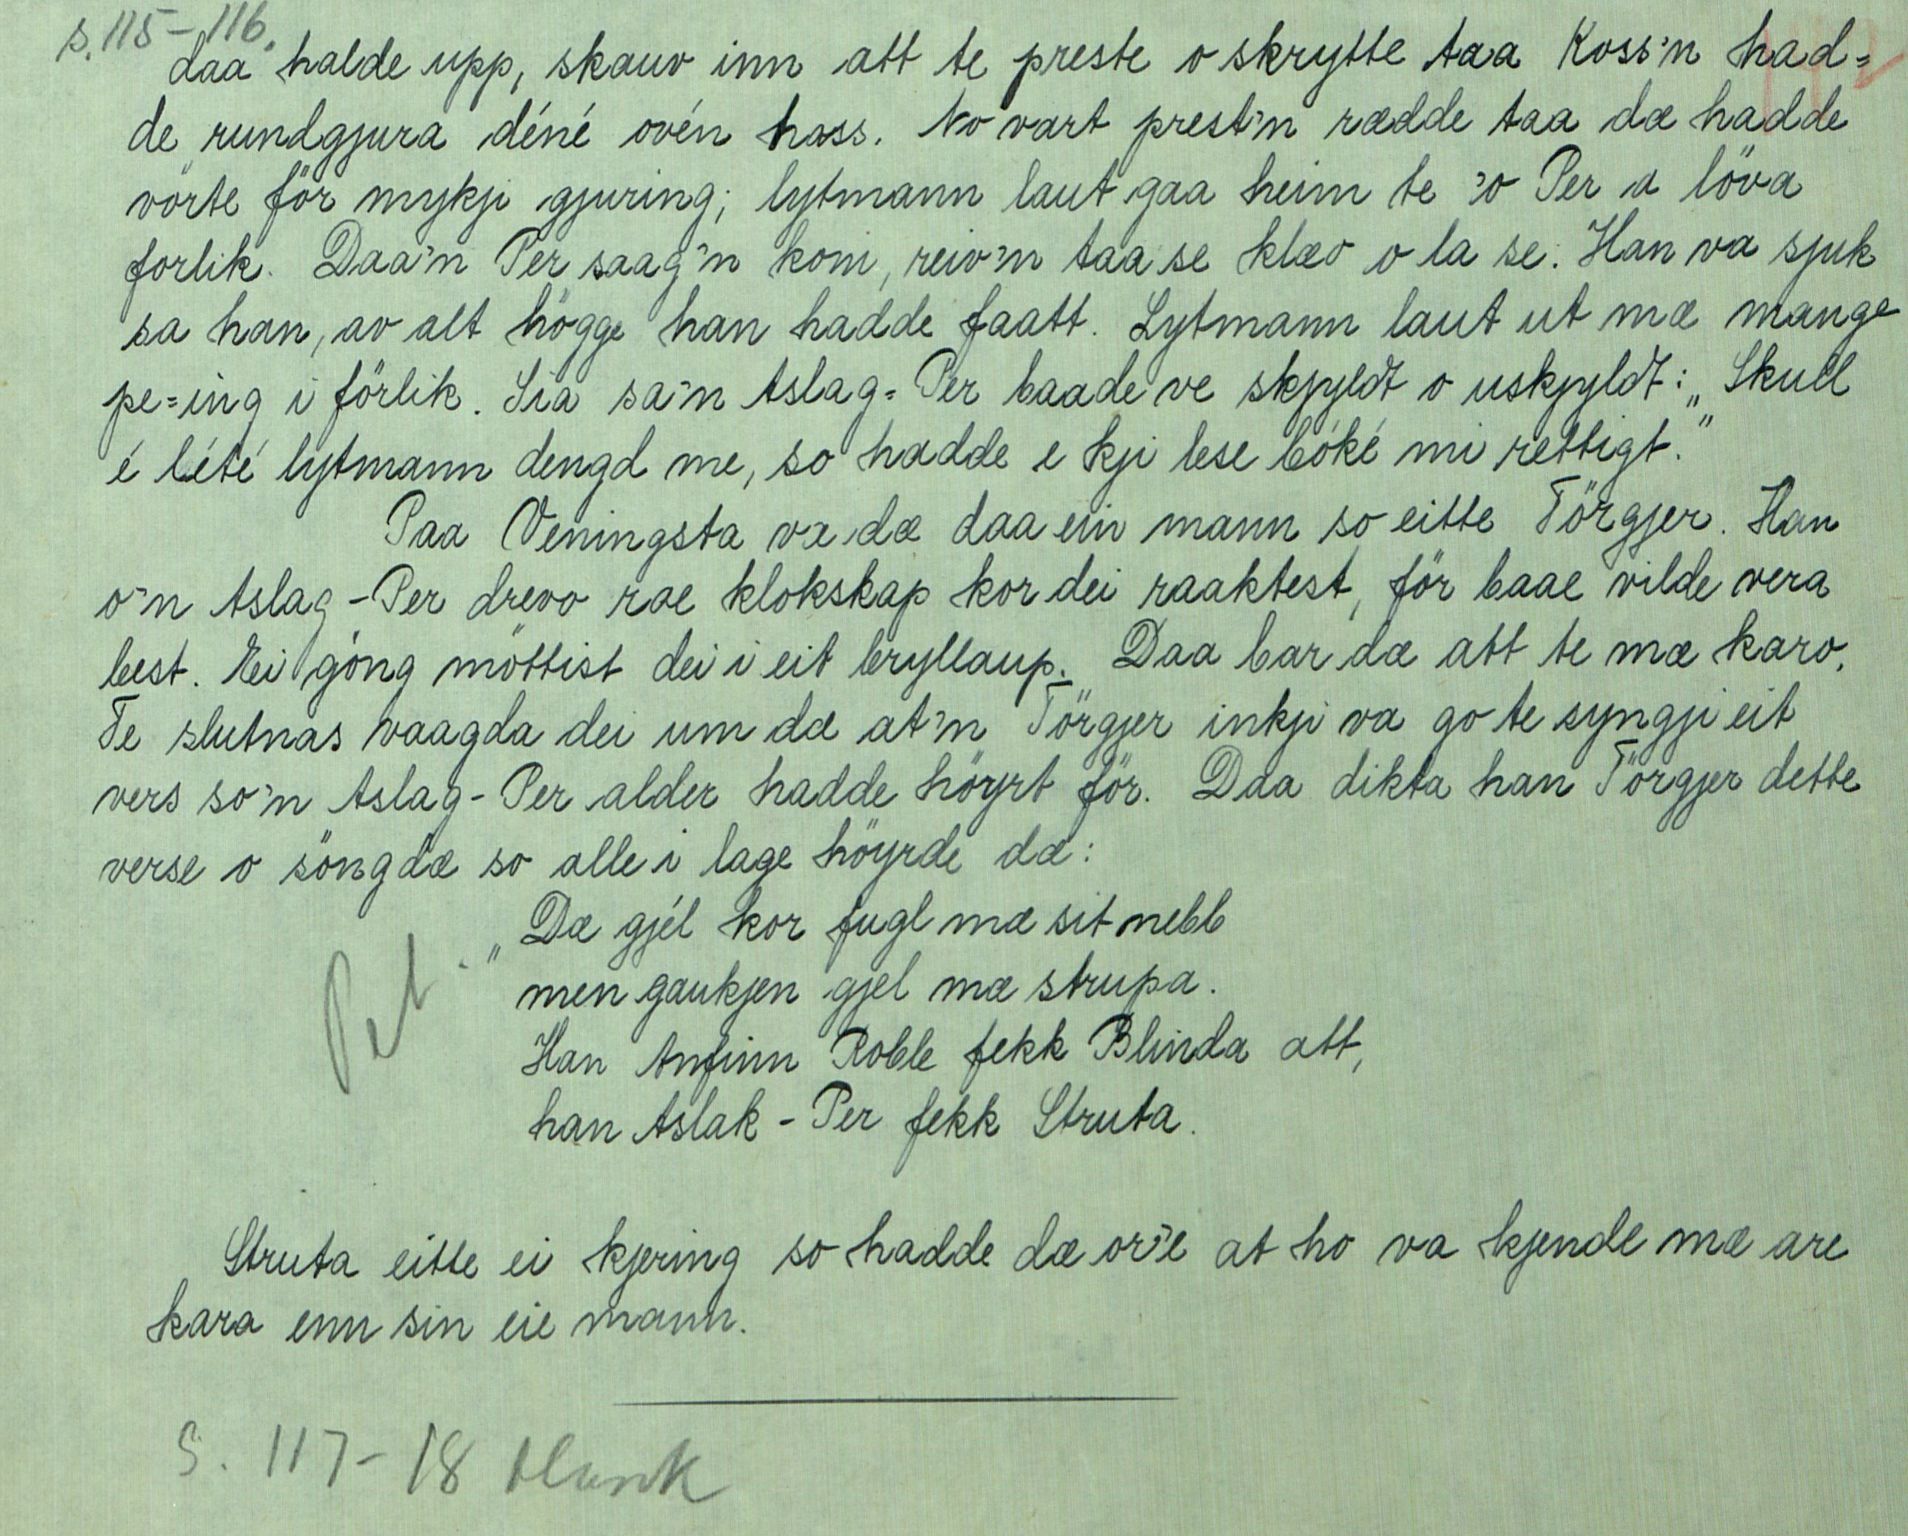 s. 115-116.
daa halde upp, skauv inn att te preste o skrytte taa Koss'n had=
de rundgjura déné ovén hass. No vart prest'n rædde taa dæ hadde
vörte för mykji gjuring; lytmann laut gaa heim te 'o Per a löva
forlik. Daa'n Per saag'n kom, reiv'n taa se klæo o la se. Han va sjuk
sa han, av alt högge han hadde faatt. Lytmann laut ut mæ mange
pe=ing i förlik. Sia sa'n Aslag=Per baade ve skjyldt o uskjyldt: „Skull
é lété lytmann dengd me, so hadde e kji lese bóké mi rettigt."
Paa Veningsta va dæ daa ein mann so eitte Törgjer. Han
o'n Aslag-Per drevo rae klokskap kor dei raaktest, för baae vilde vera
best. Ei góng möttist dei i eit bryllaup. Daa bar dæ att te mæ karo.
Te slutnas vaagda dei um dæ at'n Törgjer inkji va go te syngji eit
vers so'n Aslag-Per alder hadde höyrt för. Daa dikta han Törgjer dette
verse o söng dæ so alle i lage höyrde dæ:
„Dæ gjél kor fugl mæ sit nebb
men gaukjen gjel mæ strupa.
Han Anfinn Roble fekk Blinda att,
han Aslak-Per fekk Struta.
Struta eitte ei kjering so hadde dæ or'e at ho va kjende mæ are
kara enn sin eie mann.
S. 117-18 blank